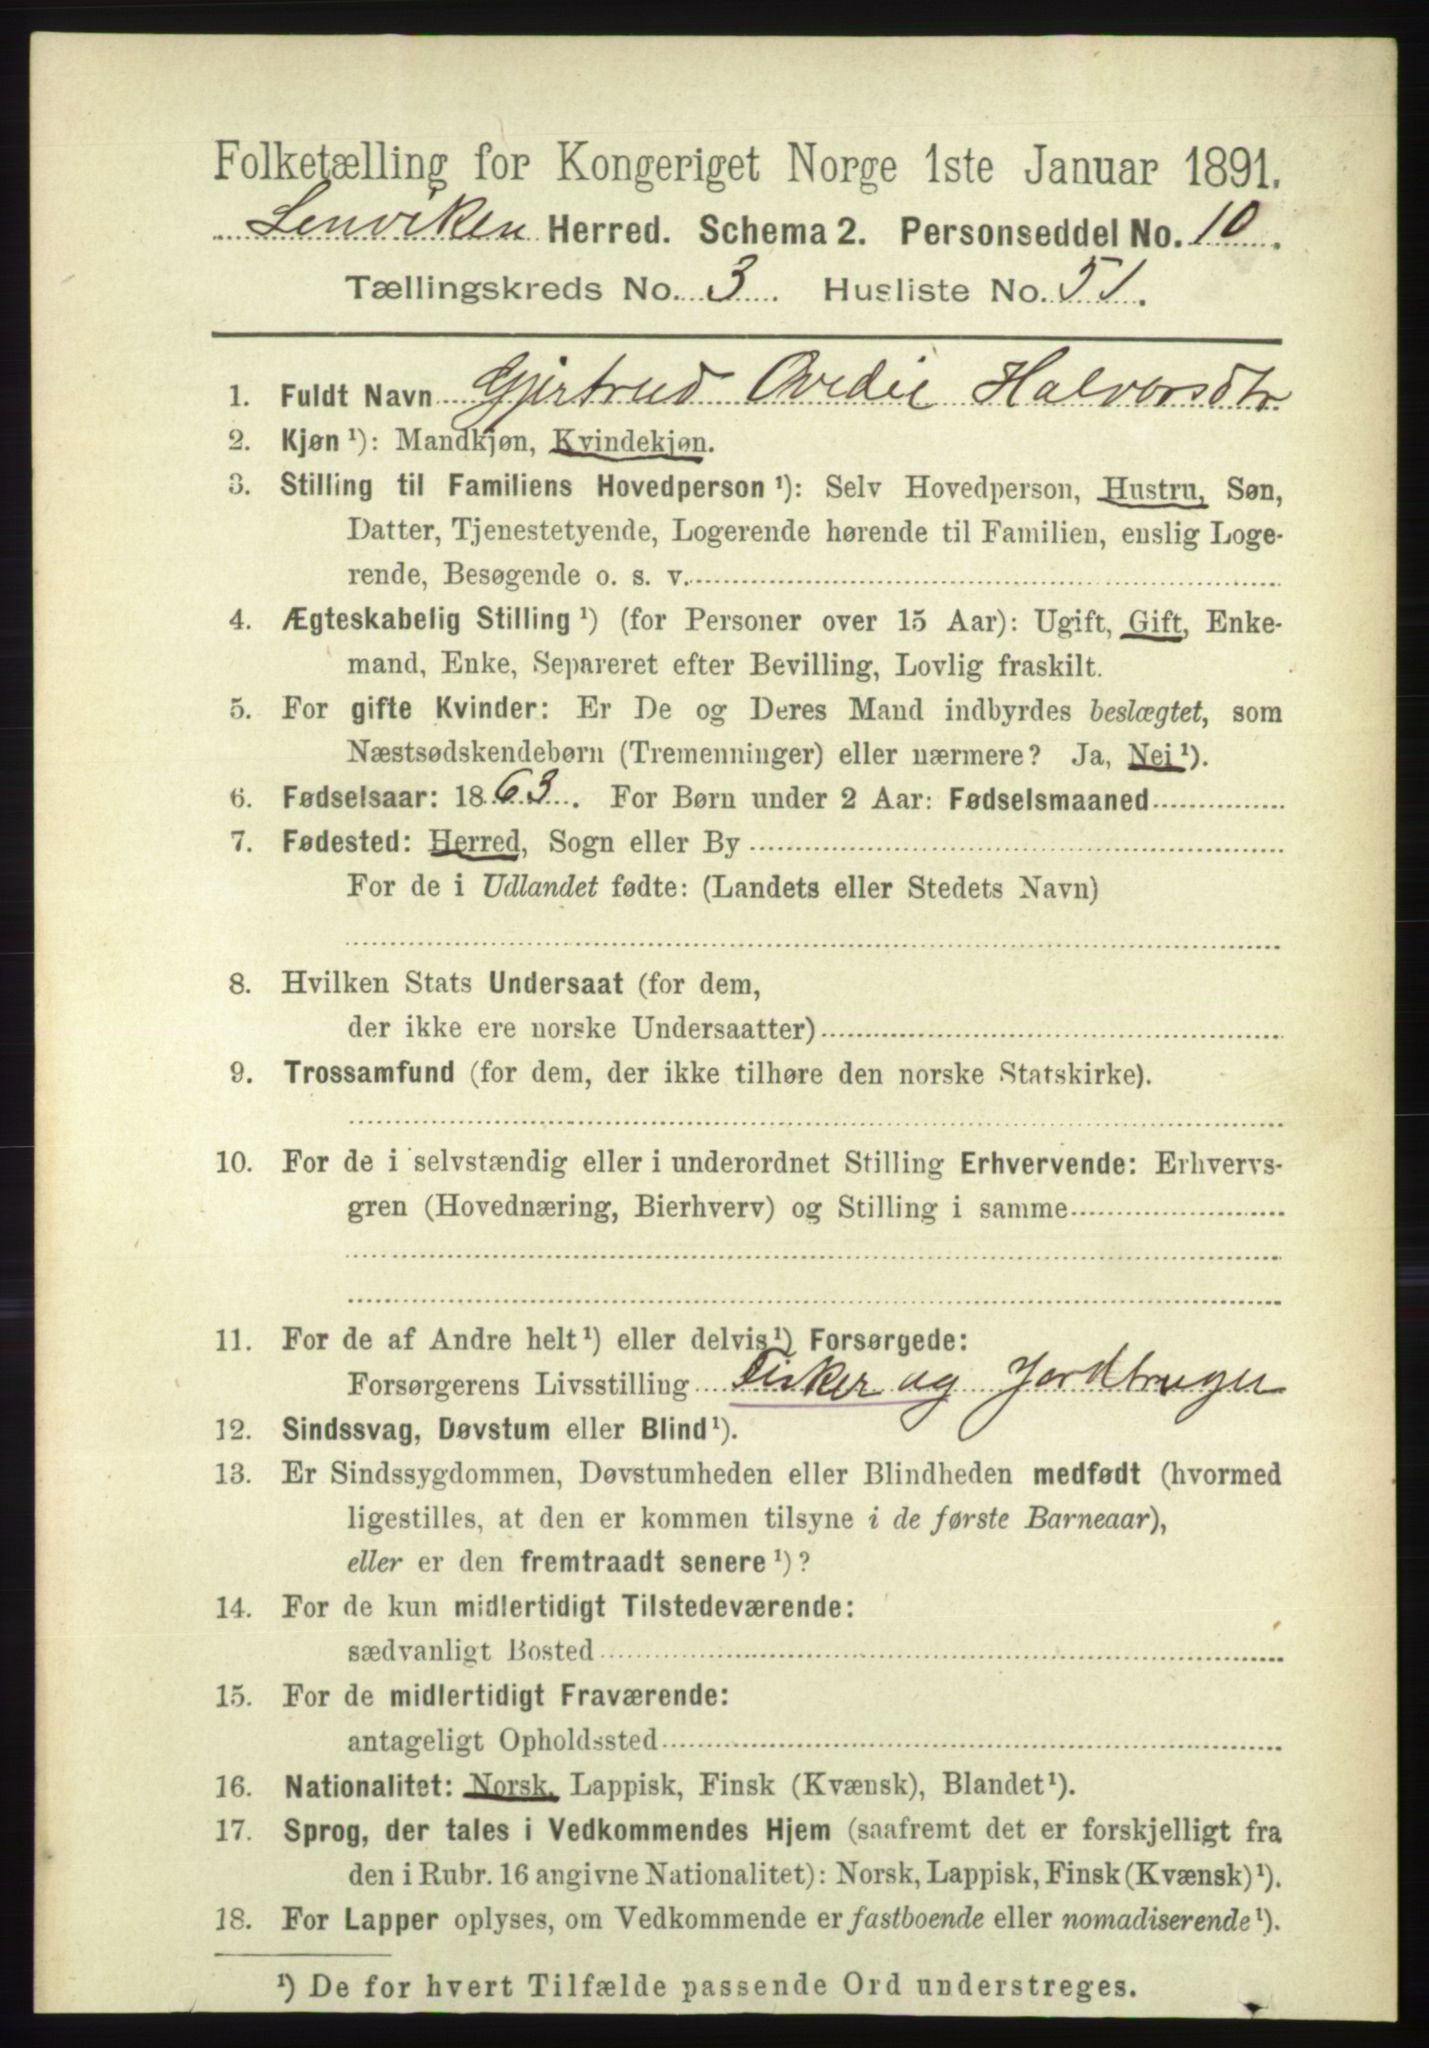 Folketælling for Kongeriget Norge 1ste Januar 1891.
Lenviken Herred. Schema 2. Personseddel No. 10.
Tællingskreds No. 3. Husliste No. 51.
1. Fuldt Navn Gjertrud Ovedie Halvorsdtr
2. Kjøn ¹): Mandkjøn, Kvindekjøn.
3. Stilling til Familiens Hovedperson ¹): Selv Hovedperson, Hustru, Søn,
Datter, Tjenestetyende, Logerende hørende til Familien, enslig Loge-
rende, Besøgende o. s. v.
4. Ægteskabelig Stilling ¹) (for Personer over 15 Aar): Ugift, Gift, Enke-
mand, Enke, Separeret efter Bevilling, Lovlig fraskilt.
5. For gifte Kvinder: Er De og Deres Mand indbyrdes beslægtet, som
Næstsødskendebørn (Tremenninger) eller nærmere? Ja, Nei ¹).
6. Fødselsaar: 1863. For Børn under 2 Aar: Fødselsmaaned
7. Fødested: Herred, Sogn eller By
For de i Udlandet fødte: (Landets eller Stedets Navn)
8. Hvilken Stats Undersaat (for dem,
der ikke ere norske Undersaatter)
9. Trossamfund (for dem, der ikke tilhøre den norske Statskirke).
10. For de i selvstændig eller i underordnet Stilling Erhvervende: Erhvervs-
gren (Hovednæring, Bierhverv) og Stilling i samme
11. For de af Andre helt ¹) eller delvis ¹) Forsørgede:
Forsørgerens Livsstilling Fisker og Jordbruger
12. Sindssvag, Døvstum eller Blind ¹).
13. Er Sindssygdommen, Døvstumheden eller Blindheden medfødt (hvormed
ligestilles, at den er kommen tilsyne i de første Barneaar),
eller er den fremtraadt senere ¹)?
14. For de kun midlertidigt Tilstedeværende:
sædvanligt Bosted
15. For de midlertidigt Fraværende:
antageligt Opholdssted
16. Nationalitet: Norsk, Lappisk, Finsk (Kvænsk), Blandet ¹).
17. Sprog, der tales i Vedkommendes Hjem (saafremt det er forskjelligt fra
den i Rubr. 16 angivne Nationalitet): Norsk, Lappisk, Finsk (Kvænsk) ¹).
18. For Lapper oplyses, om Vedkommende er fastboende eller nomadiserende ¹).
¹) De for hvert Tilfælde passende Ord understreges.